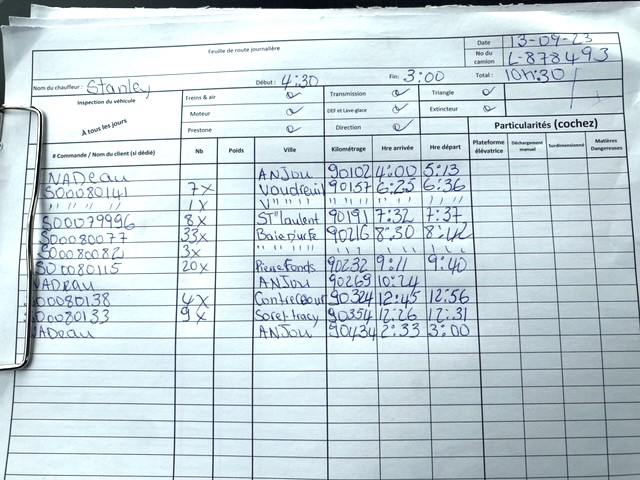 Feuille de route journalière
Date 13-09-23
No du camion L-878493
Nom du chauffeur : Stanley Début : 4:30 Fin: 3:00 Total : 10h:30
Inspection du véhicule
À tous les jours
Freins & air ✓ Transmission ✓ Triangle ✓
Moteur ✓ DEF et Lave-glace ✓ Extincteur ✓
Prestone ✓ Direction ✓
Particularités (cochez)
# Commande / Nom du client (si dédié) Nb Poids Ville Kilométrage Hre arrivée Hre départ Plateforme élévatrice Déchargement manuel Surdimensionné Matières Dangereuses
NADeau ANJou 90102 4:00 5:13
S00080141 7x Vaudreuil 90157 6:25 6:36
" " " " " 1x V" " " " " " " " " "
S00079996 8x St Laurent 90191 7:32 7:37
S00080077 33x Baie Durfe 90216 8:30 8:42
S00080082 3x " " " " " " " " "
S00080115 20x Pierrefonds 90232 9:11 9:40
NADeau ANJou 90269 10:24
00080138 4x Contrecoeur 90324 12:45 12:56
00080133 9x Sorel-tracy 90354 12:26 12:31
ADeau ANJou 90434 2:33 3:00